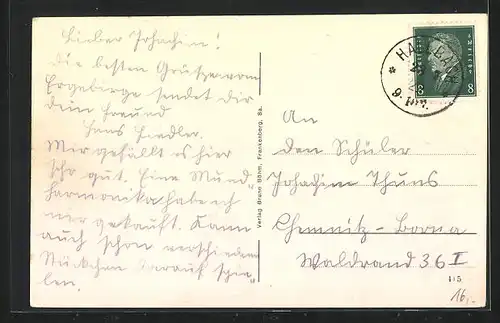 Lieber Johachim!
Die besten Grüße vom
Erzgebirge sendet dir
dein Freund
Hans Fiedler.
Mir gefällt es hier
sehr gut. Eine Mund-
harmonika habe ich
mir gekauft. Kann
auch schon verschiedene
Stückchen darauf spie-
len.
Verlag Bruno Böhm, Frankenberg, Sa.
8 8
An
den Schüler
Johachim Thuns
Chemnitz-Borna
Waldrand 36 I
115
16,-